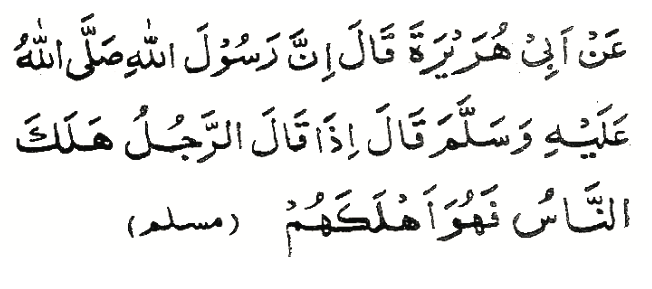 عَنْ اَبِيْ هُرَيْرَةَ قَالَ اِنَّ رَسُوْلَ اللّٰهِ صَلَّى اللّٰهُ
عَلَيْهِ وَسَلَّمَ قَالَ اِذَا قَالَ الرَّجُلُ هَلَكَ
النَّاسُ فَهُوَ اَهْلَكَهُمْ (مسلم)